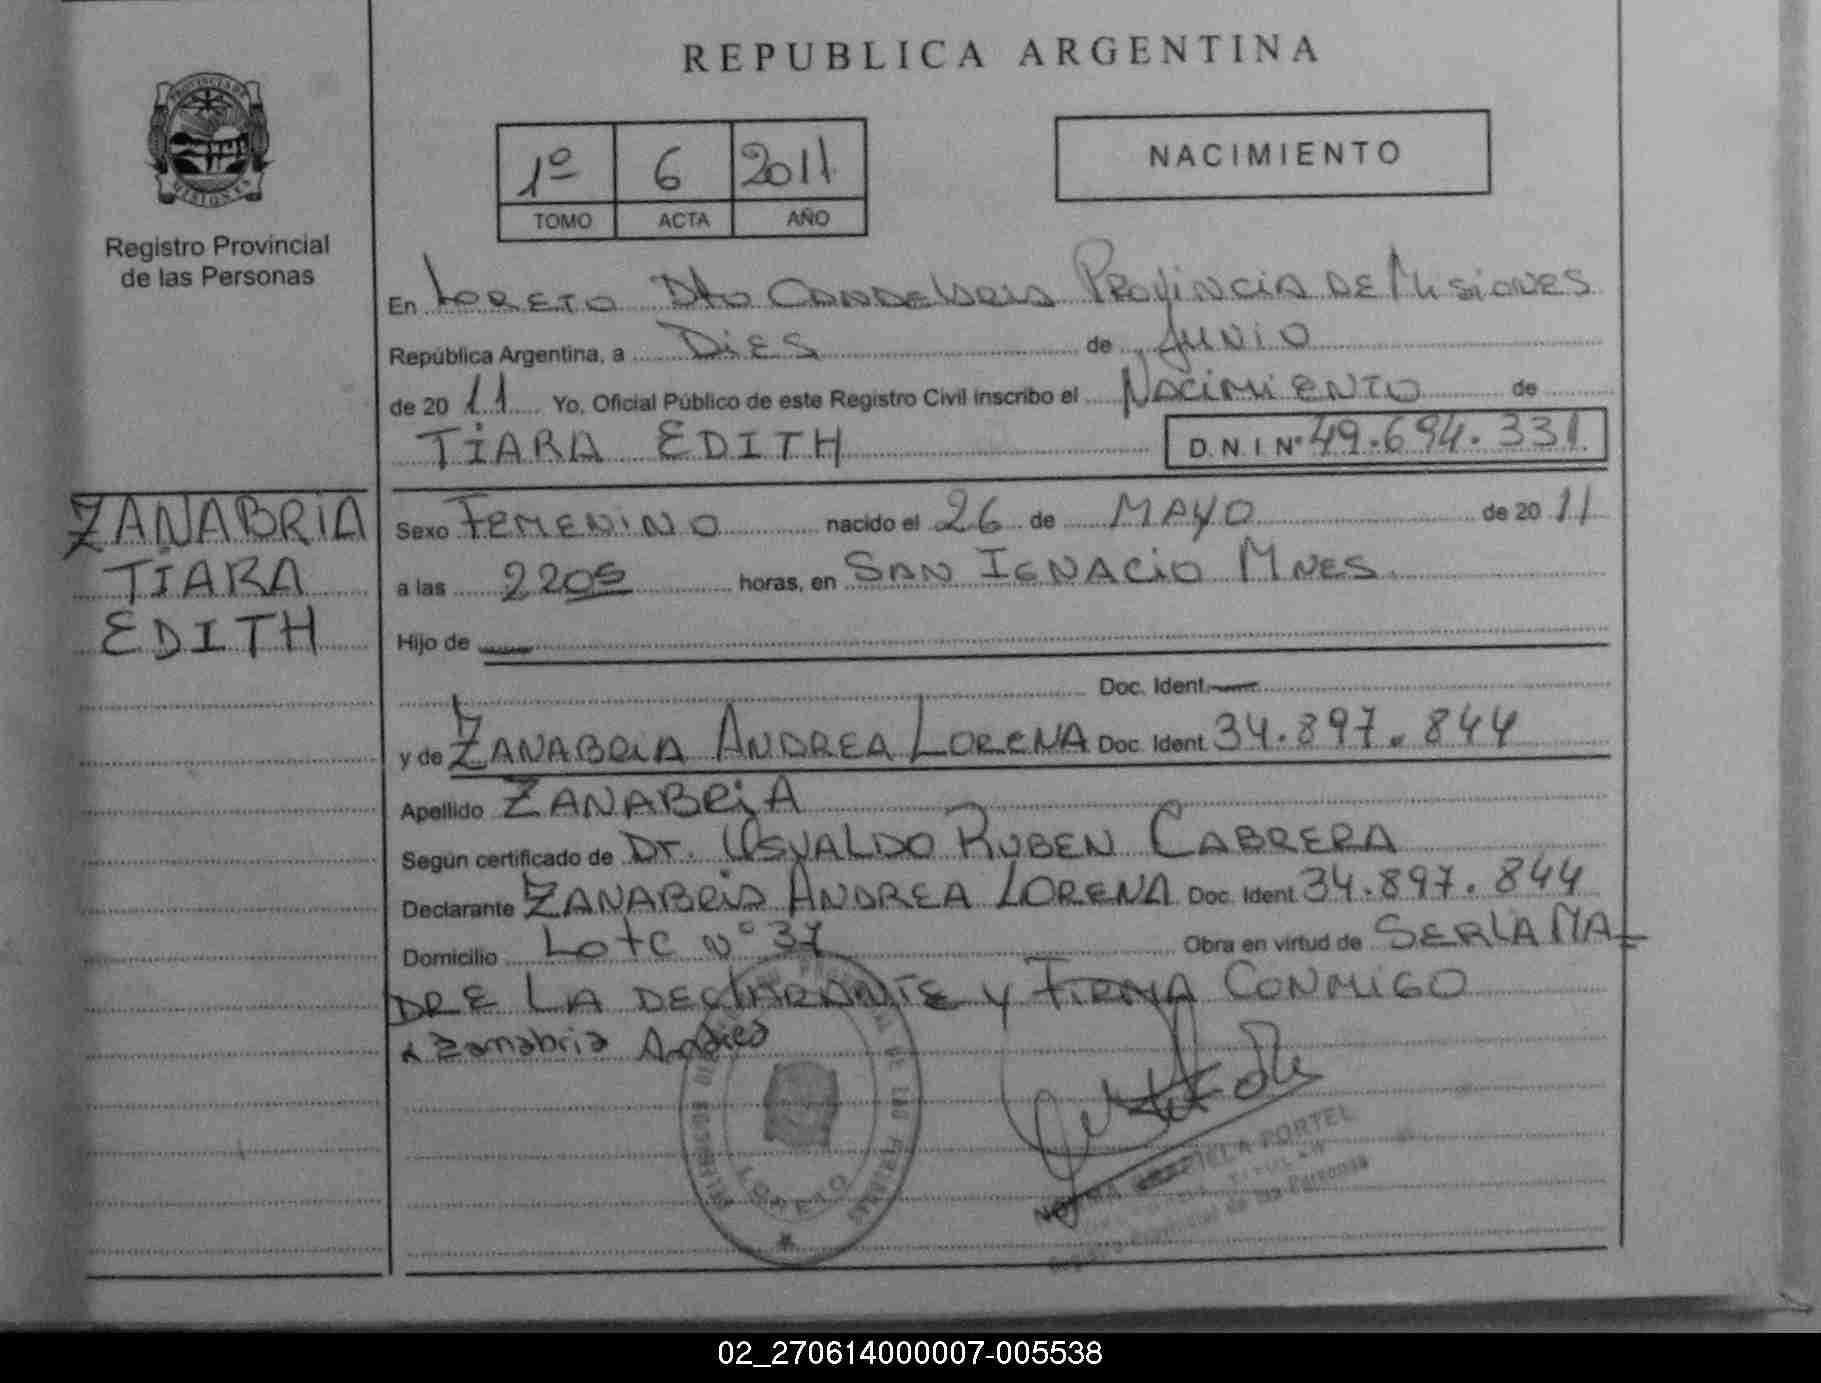 REPUBLICA ARGENTINA
PROVINCIA DE
MISIONES
Registro Provincial
de las Personas
1º 6 2011
TOMO ACTA AÑO
NACIMIENTO
En LORETO Dto CANDELARIA PROVINCIA DE MISIONES
República Argentina, a DIES de JUNIO
de 2011 Yo, Oficial Público de este Registro Civil inscribo el NACIMIENTO de
TIARA EDITH D.N.I Nº 49.694.331
ZANABRIA
TIARA
EDITH
Sexo FEMENINO nacido el 26 de MAYO de 2011
a las 2205 horas, en SAN IGNACIO MNES.
Hijo de
Doc. Ident.
y de ZANABRIA ANDREA LORENA Doc. Ident 34.897.844
Apellido ZANABRIA
Según certificado de Dr. OSVALDO RUBEN CABRERA
Declarante ZANABRIA ANDREA LORENA Doc. Ident 34.897.844
Domicilio Lote Nº 37 Obra en virtud de SER LA MA-
DRE LA DECLARANTE y FIRMA CONMIGO
Zanabria Andrea
LORETO
NORMA GRACIELA PORTEL
de las Personas
02_270614000007-005538